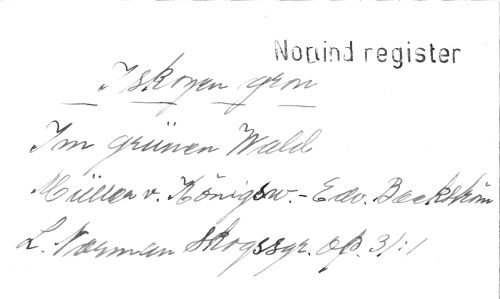 Norrind register
I skogen grön
Im grünen Wald
Müller v. Königsw. - Edv. Backström
L. Norman Skogssgr. op. 31:1